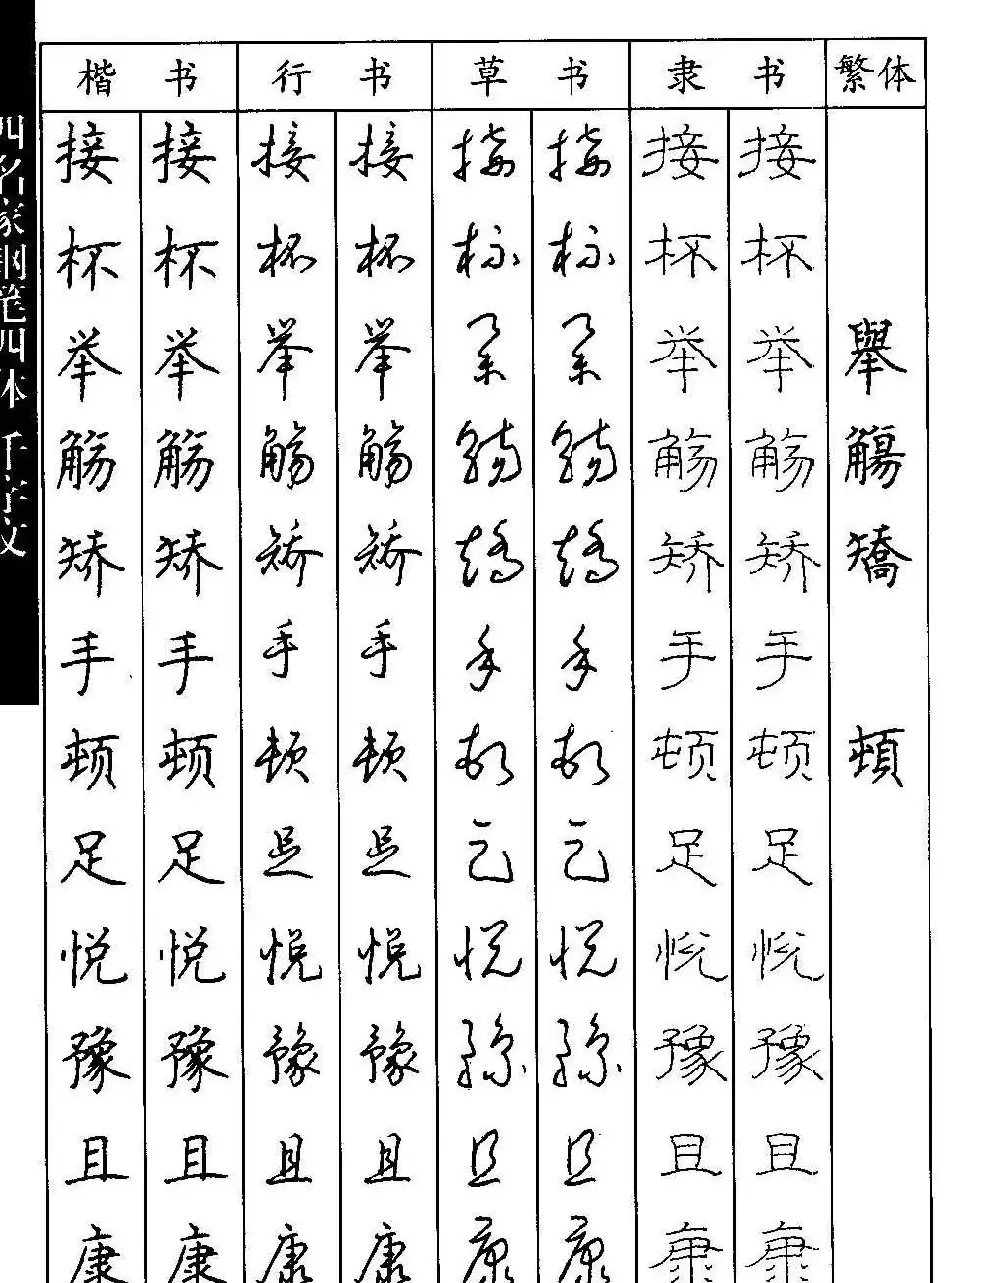 四名家钢笔四体 千字文
楷书 行书 草书 隶书 繁体
接 接 接 接 接 接 接 接
杯 杯 杯 杯 杯 杯 杯 杯
举 举 举 举 举 举 举 举 舉
觞 觞 觞 觞 觞 觞 觞 觞 觴
矫 矫 矫 矫 矫 矫 矫 矫 矯
手 手 手 手 手 手 手 手
顿 顿 顿 顿 顿 顿 顿 顿 頓
足 足 足 足 足 足 足 足
悦 悦 悦 悦 悦 悦 悦 悦
豫 豫 豫 豫 豫 豫 豫 豫
且 且 且 且 且 且 且 且
康 康 康 康 康 康 康 康